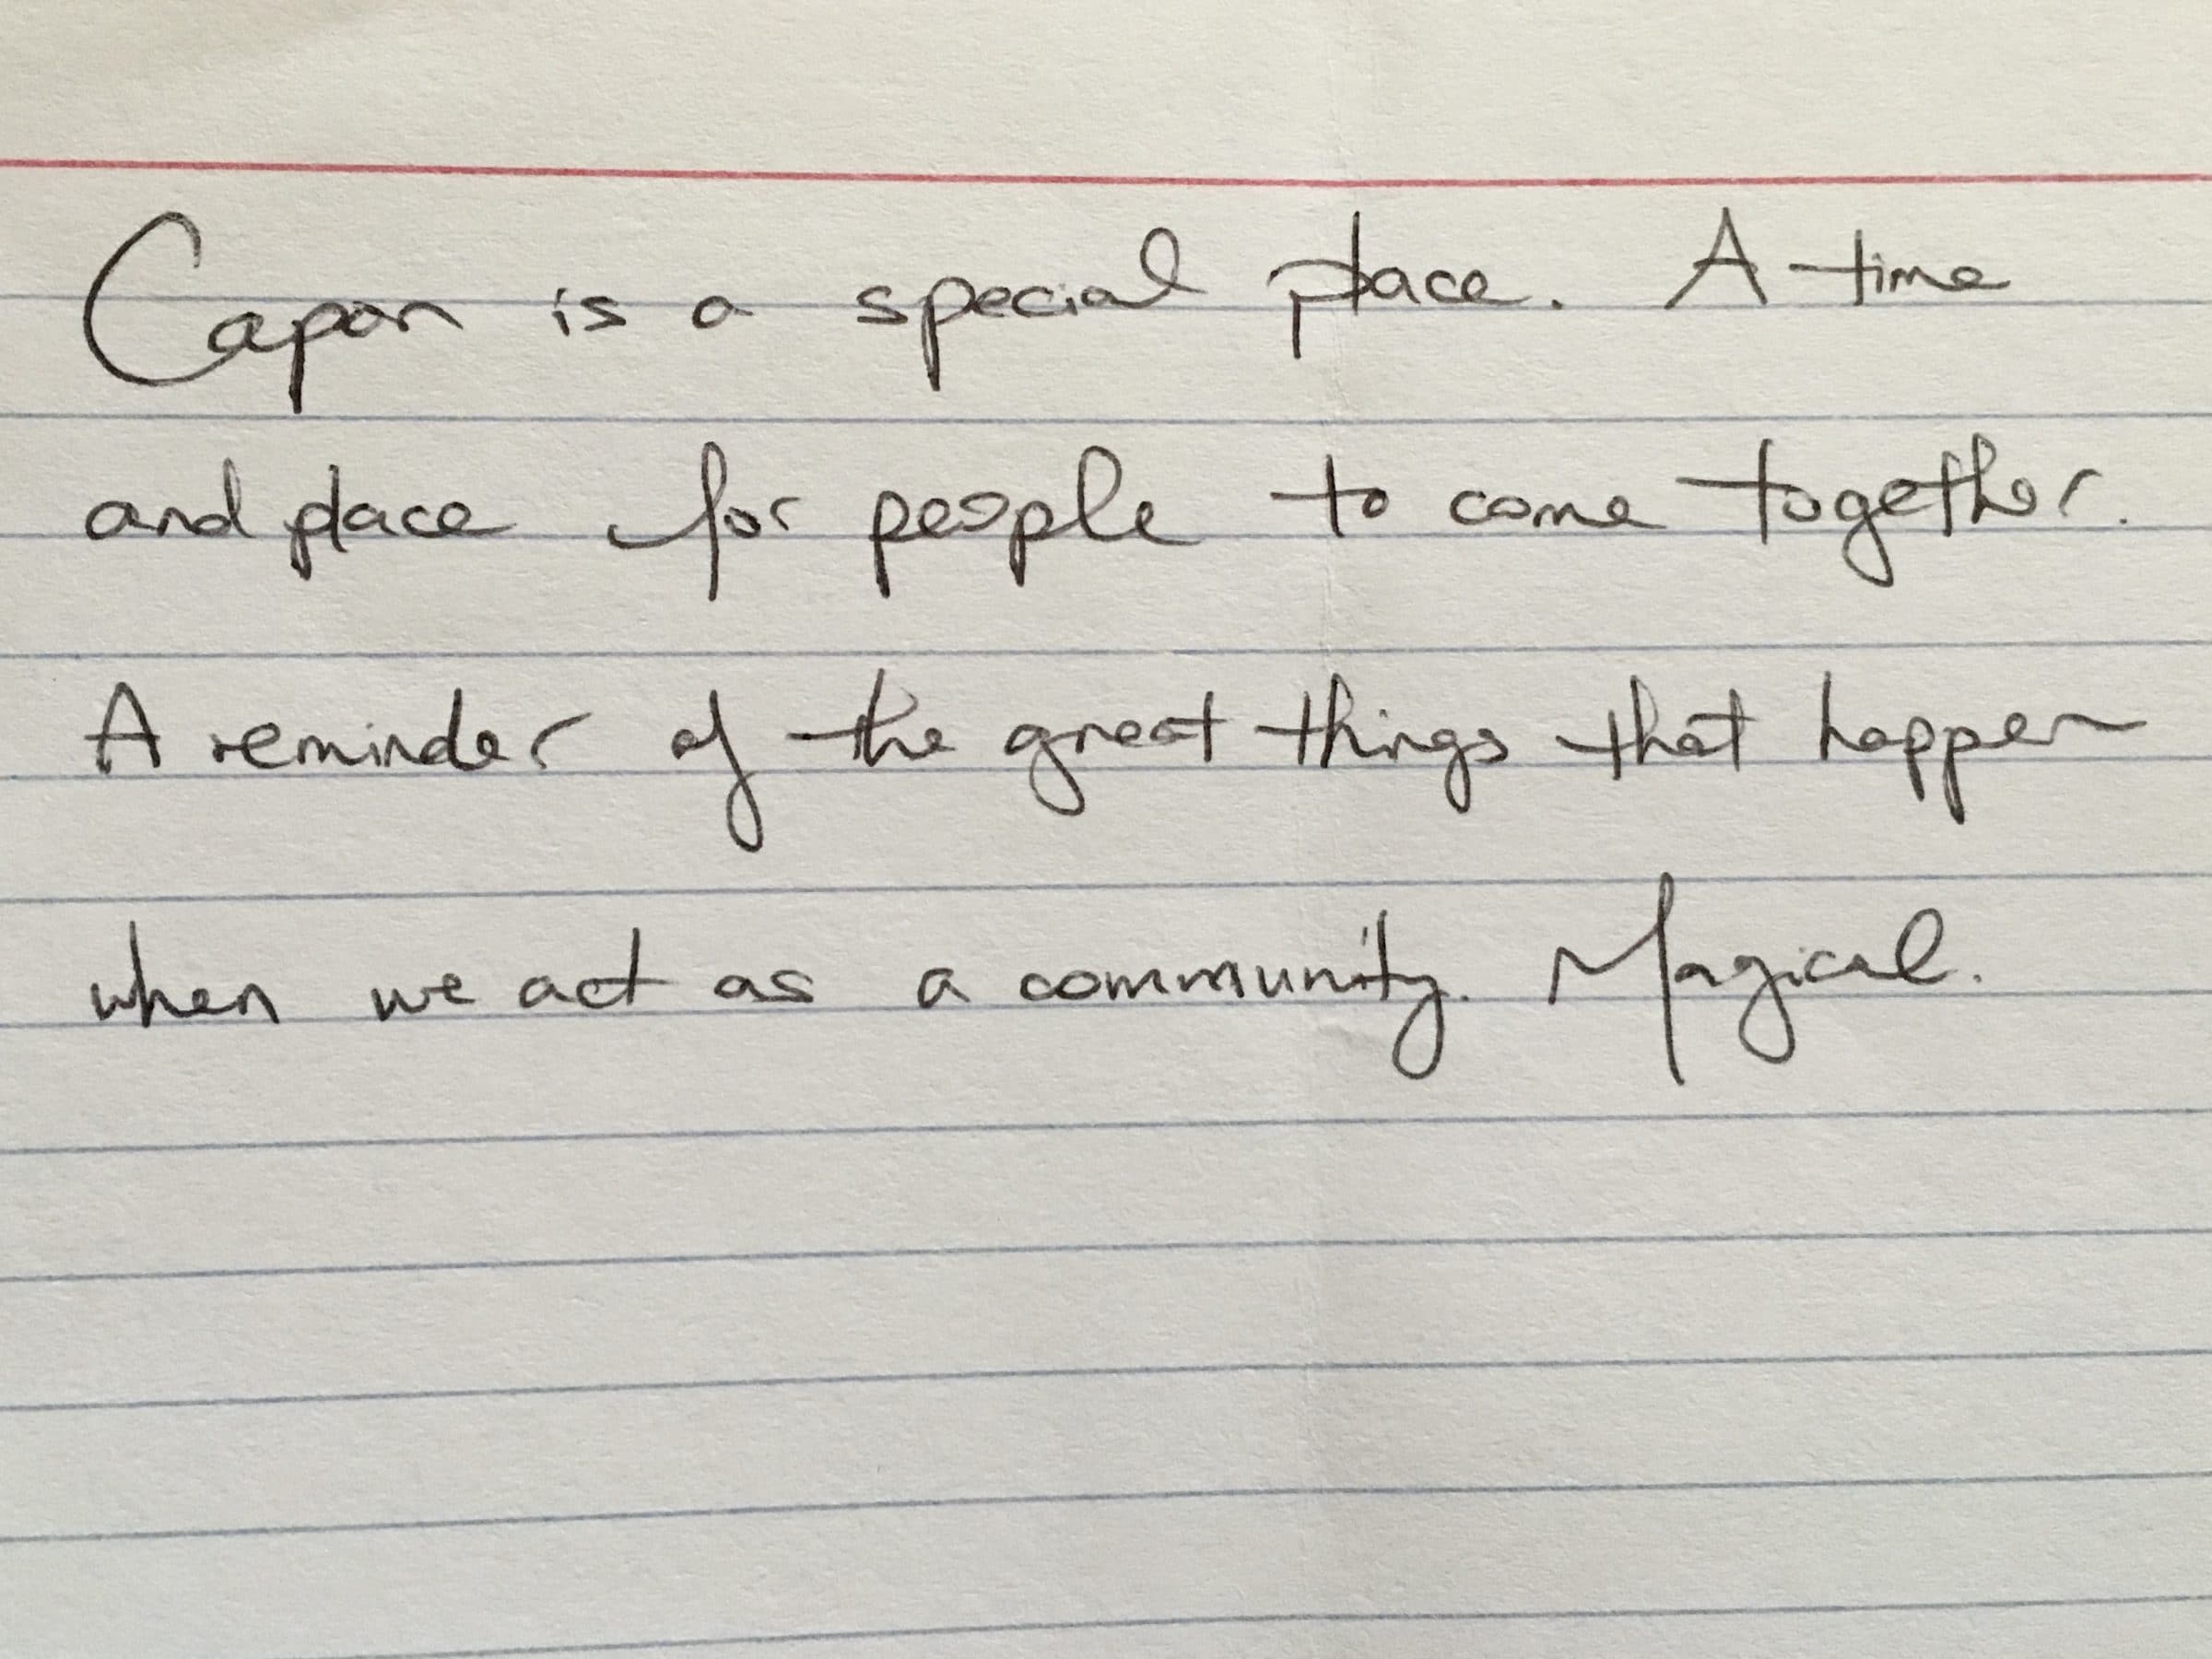 Capon is a special place. A time
and place for people to come together.
A reminder of the great things that happen
when we act as a community. Magical.